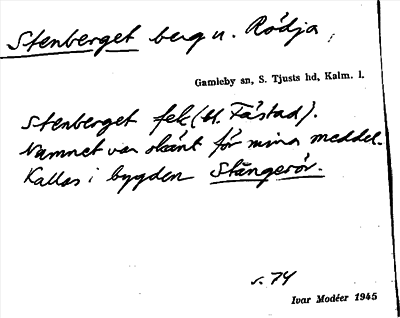 Stenberget berg u. Rödja,
Gamleby sn, S. Tjusts hd, Kalm. l.
Stenberget fek (u. Fästad).
Namnet var okänt för mina meddel.
Kallas i bygden Stångerör.
s. 74
Ivar Modéer 1945